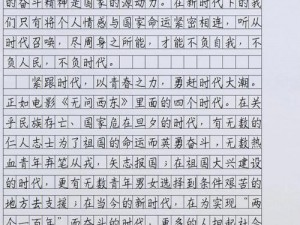 的奋斗精神是国家的源动力。在新时代下的我
们只有将个人情感与国家命运紧密相连，听从
时代召唤，尽周身之所能，才能不负自我，不
负人民，不负时代。
紧跟时代，以青春之力，勇赶时代大潮。
正如电影《无问西东》里面的四个时代。在关
乎民族存亡、国家危在旦夕的时代，有无数的
仁人志士为了抓国家的命运而英勇奋斗，无数热
血青年弃笔从戎，矢志报国；在祖国大兴建设
的时代，更有无数青年男女选择到条件艰苦的
地方去支援；在当今的新时代，在为实现“两
个一百年”而奋斗的时代，更多的人担起社会